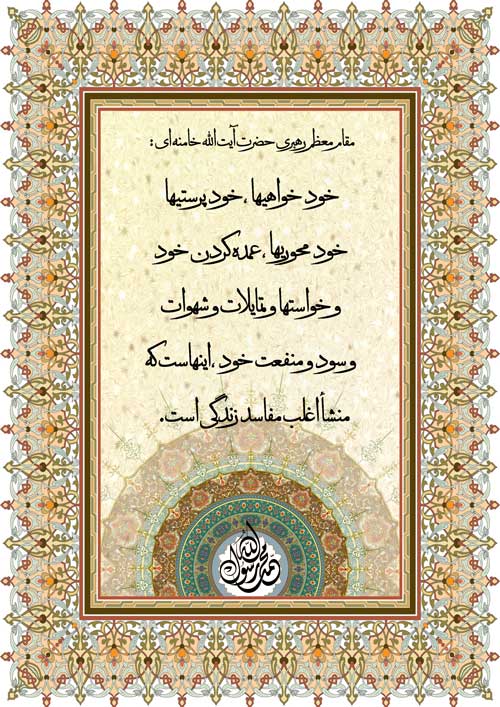 مقام معظم رهبری حضرت آیت الله خامنه ای :
خود خواهیها ، خود پرستیها
خود محوریها ، عمده کردن خود
و خواستها و تمایلات و شهوات
و سود و منفعت خود ، اینهاست که
منشأ اغلب مفاسد زندگی است.
محمد رسول الله